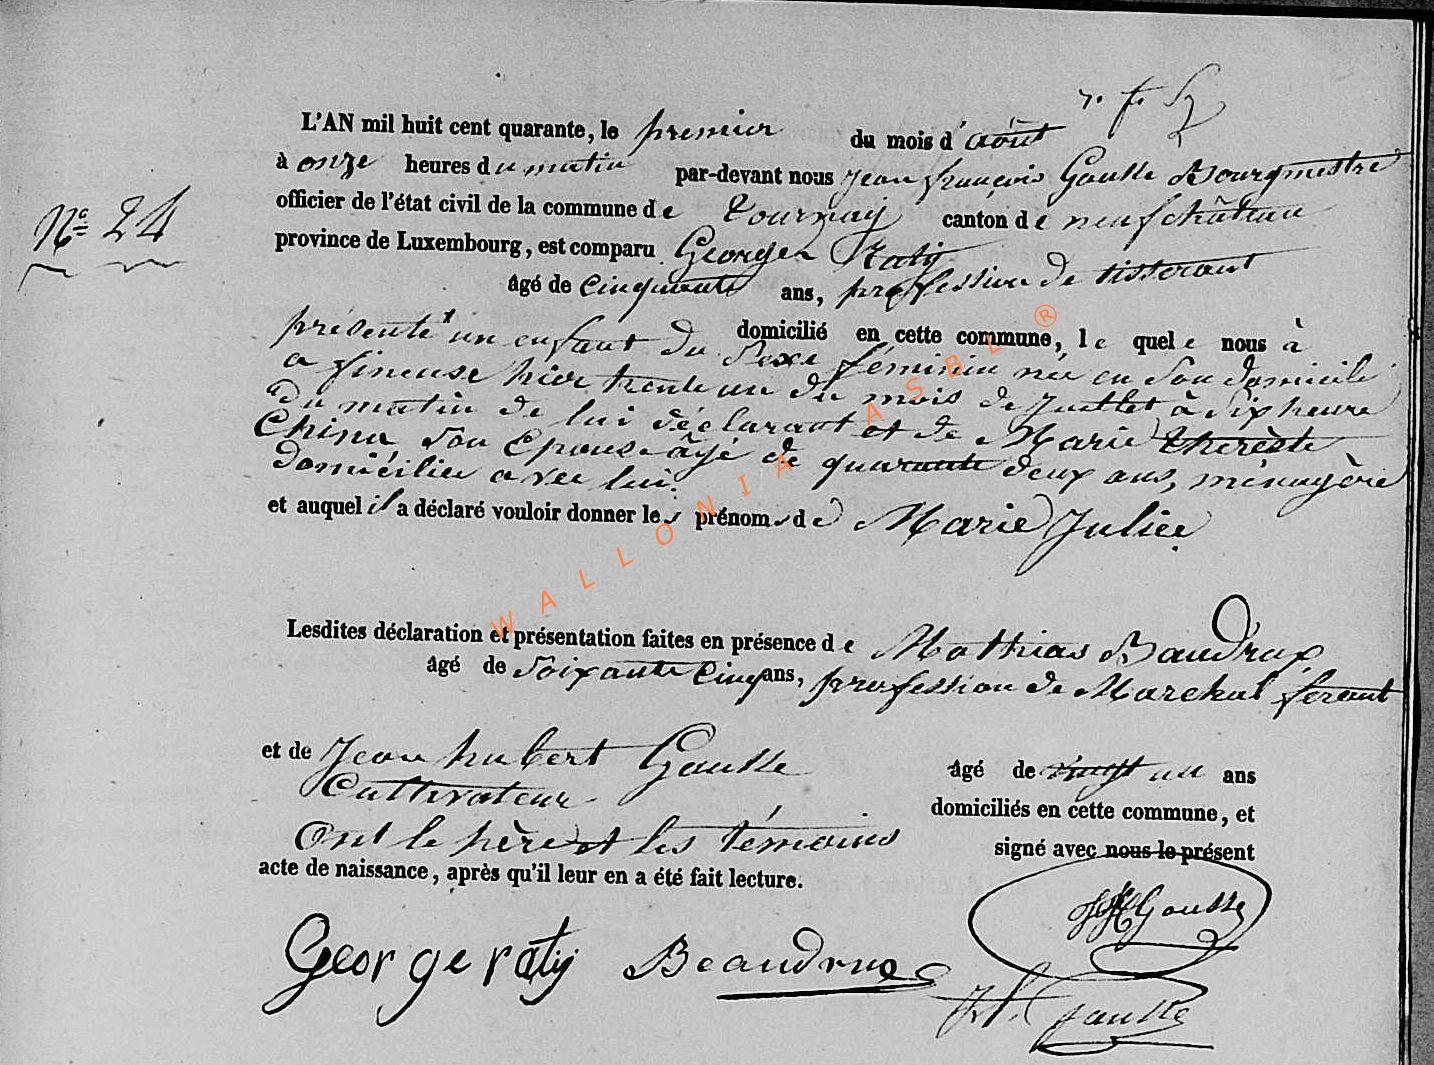 L'AN mil huit cent quarante, le premier du mois d'août
à onze heures du matin par-devant nous Jean françois Gousse Bourgmestre
officier de l'état civil de la commune de tournay canton de neufchâteau
N° 24
province de Luxembourg, est comparu George Raty
âgé de cinquante ans, profession de tisserant
domicilié en cette commune, le quel e nous à
présenté un enfant du sexe féminin née en son domicile
a fineuse hier trente un du mois de Juillet à six heure
du matin de lui déclarant et de Marie thereste
China son Epouse âgé de quarante deux ans, ménagère
domicilier avec lui.
et auquel il a déclaré vouloir donner les prénoms de Marie Juliee
Lesdites déclaration et présentation faites en présence de Mathias Baudrux
âgé de soixante cinq ans, profession de Marehal ferant
et de Jean hubert Gousse âgé de vingt un ans
Cultivateur domiciliés en cette commune, et
Ont le père et les témoins signé avec nous le présent
acte de naissance, après qu'il leur en a été fait lecture.
George raty Beaudrux Gousse
Gousse
WALLONIA ASBL ®